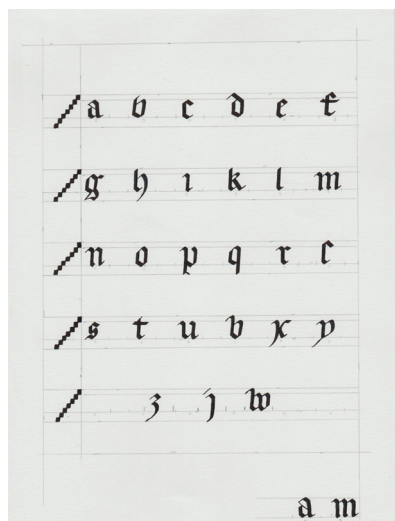 a b c d e f
g h i k l m
n o p q r ſ
s t u v x y
z j w
a m